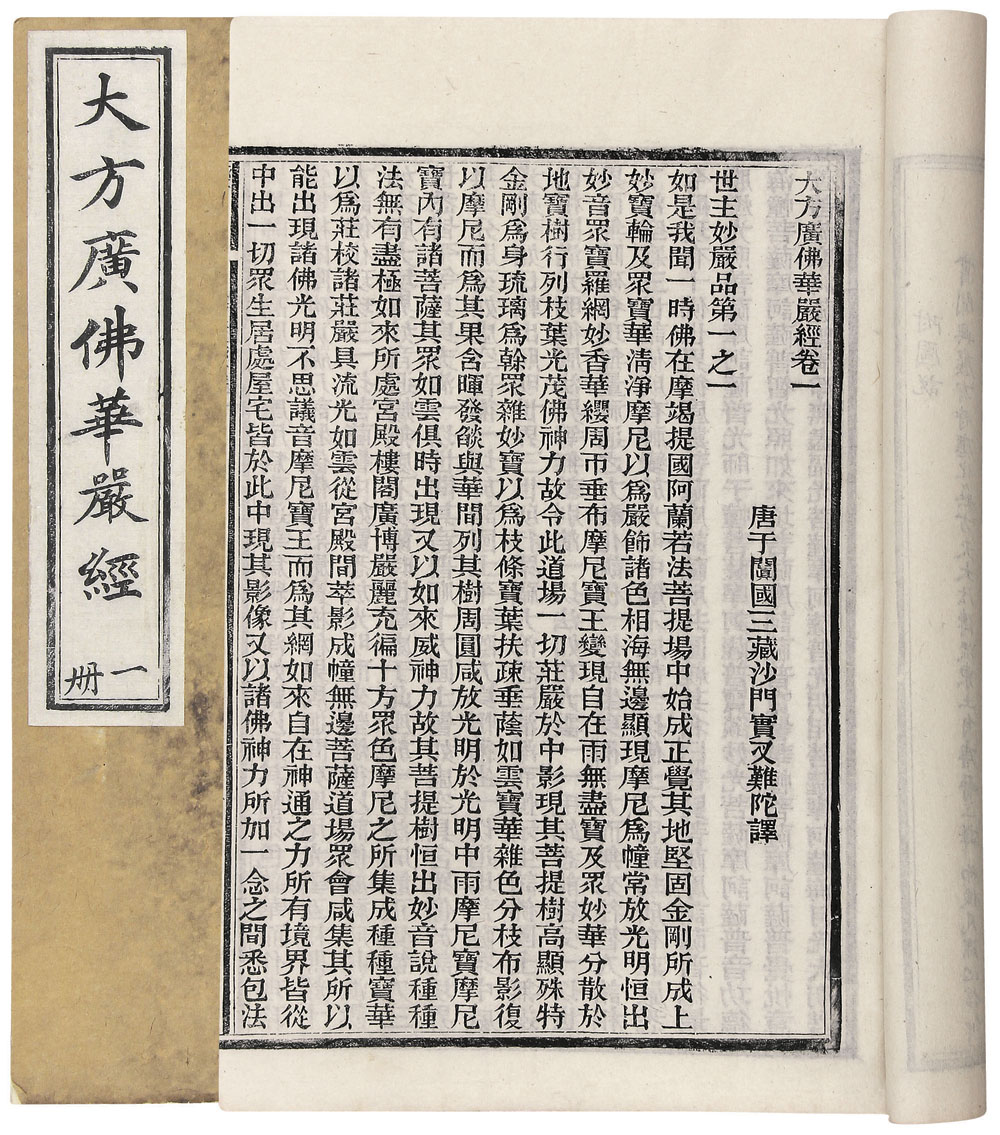 大方廣佛華嚴經
一册
大方廣佛華嚴經卷一
唐于闐國三藏沙門實叉難陀譯
世主妙嚴品第一之一
如是我聞一時佛在摩竭提國阿蘭若法菩提場中始成正覺其地堅固金剛所成上
妙寶輪及眾寶華清淨摩尼以爲嚴飾諸色相海無邊顯現摩尼爲幢常放光明恒出
妙音眾寶羅網妙香華纓周帀垂布摩尼寶王變現自在雨無盡寶及眾妙華分散於
地寶樹行列枝葉光茂佛神力故令此道場一切莊嚴於中影現其菩提樹高顯殊特
金剛爲身琉璃爲榦眾雜妙寶以爲枝條寶葉扶疎垂蔭如雲寶華雜色分枝布影復
以摩尼而爲其果含暉發燄與華間列其樹周圓咸放光明於光明中雨摩尼寶摩尼
寶內有諸菩薩其眾如雲俱時出現又以如來威神力故其菩提樹恒出妙音說種種
法無有盡極如來所處宮殿樓閣廣博嚴麗充徧十方眾色摩尼之所集成種種寶華
以爲莊校諸莊嚴具流光如雲從宮殿間萃影成幢無邊菩薩道場眾會咸集其所以
能出現諸佛光明不思議音摩尼寶王而爲其網如來自在神通之力所有境界皆從
中出一切眾生居處屋宅皆於此中現其影像又以諸佛神力所加一念之間悉包法